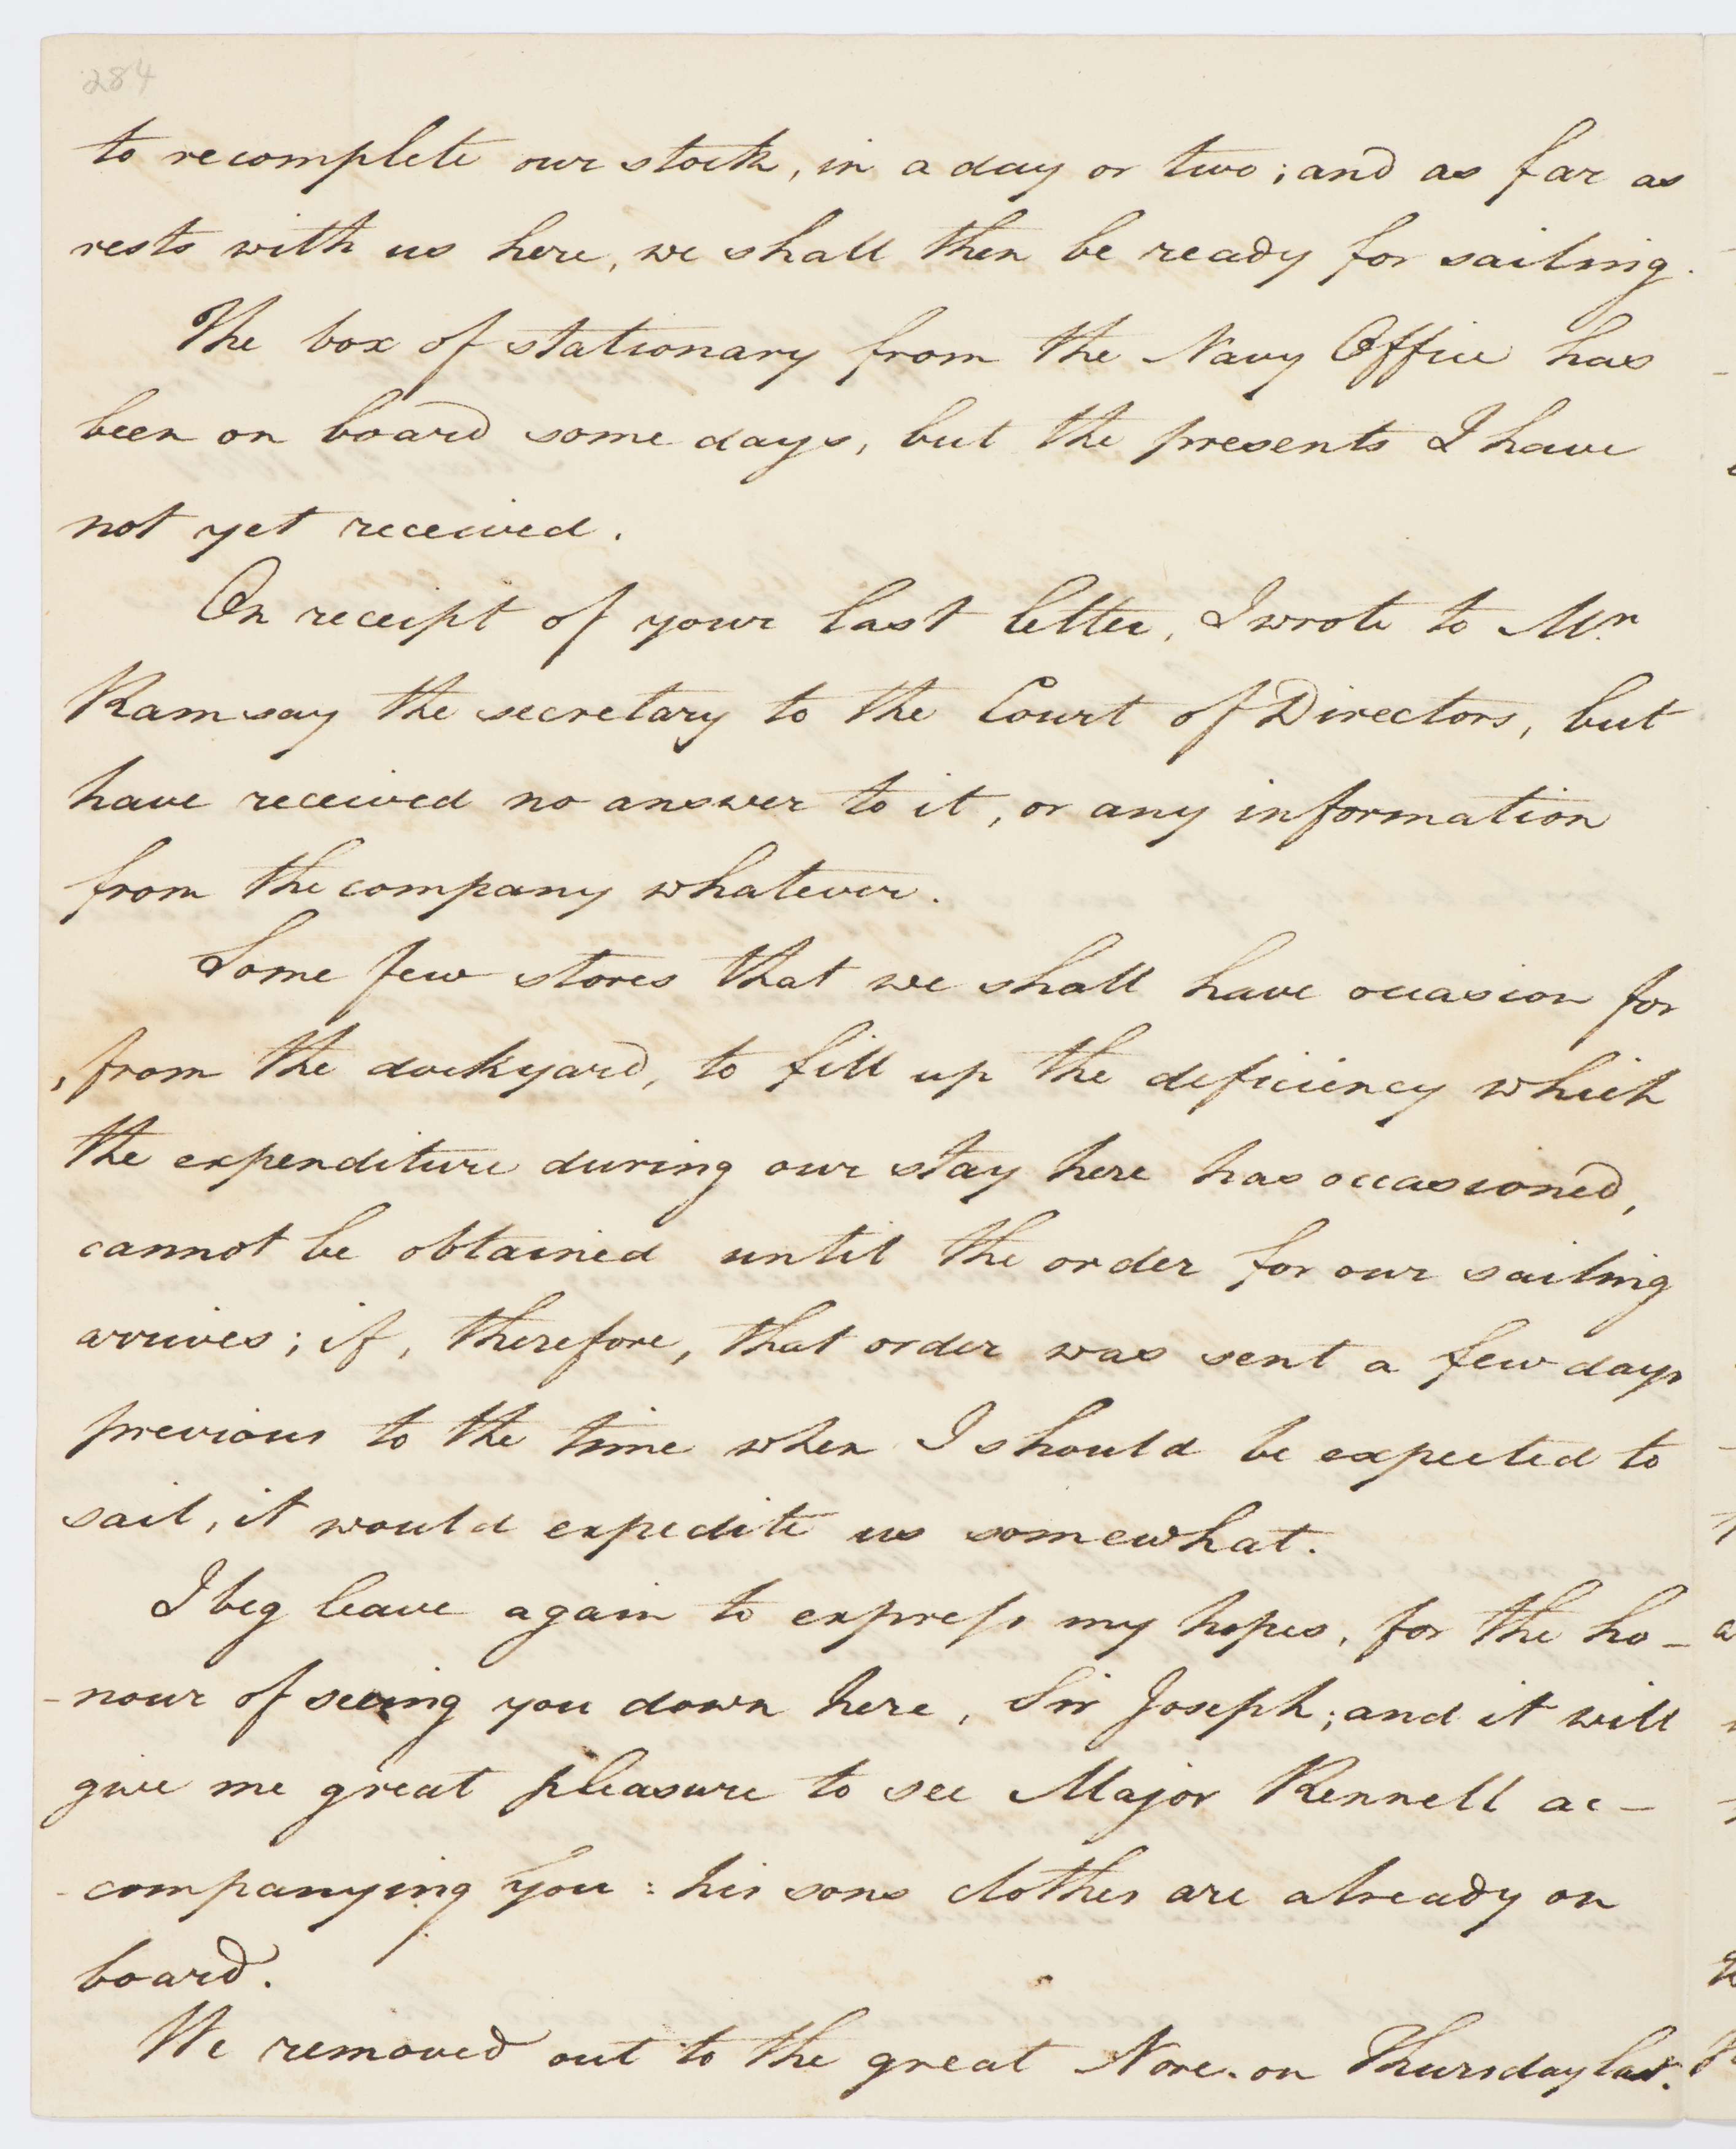 284
to recomplete our stock, in a day or two; and as far as
rests with us here, we shall then be ready for sailing.
The box of stationary from the Navy Office has
been on board some days, but the presents I have
not yet received.
On receipt of your last letter, I wrote to Mr.
Ramsay the secretary to the Court of Directors, but
have received no answer to it, or any information
from the company whatever.
Some few stores that we shall have occasion for
, from the dockyard, to fill up the deficiency which
the expenditure during our stay here has occasioned,
cannot be obtained until the order for our sailing
arrives; if, therefore, that order was sent a few days
previous to the time when I should be expected to
sail, it would expedite us somewhat.
I beg leave again to express my hopes, for the ho-
-nour of seeing you down here, Sir Joseph; and it will
give me great pleasure to see Major Rennell ac-
-companying you: his sons clothes are already on
board.
We removed out to the great Nore. on Thursday last.